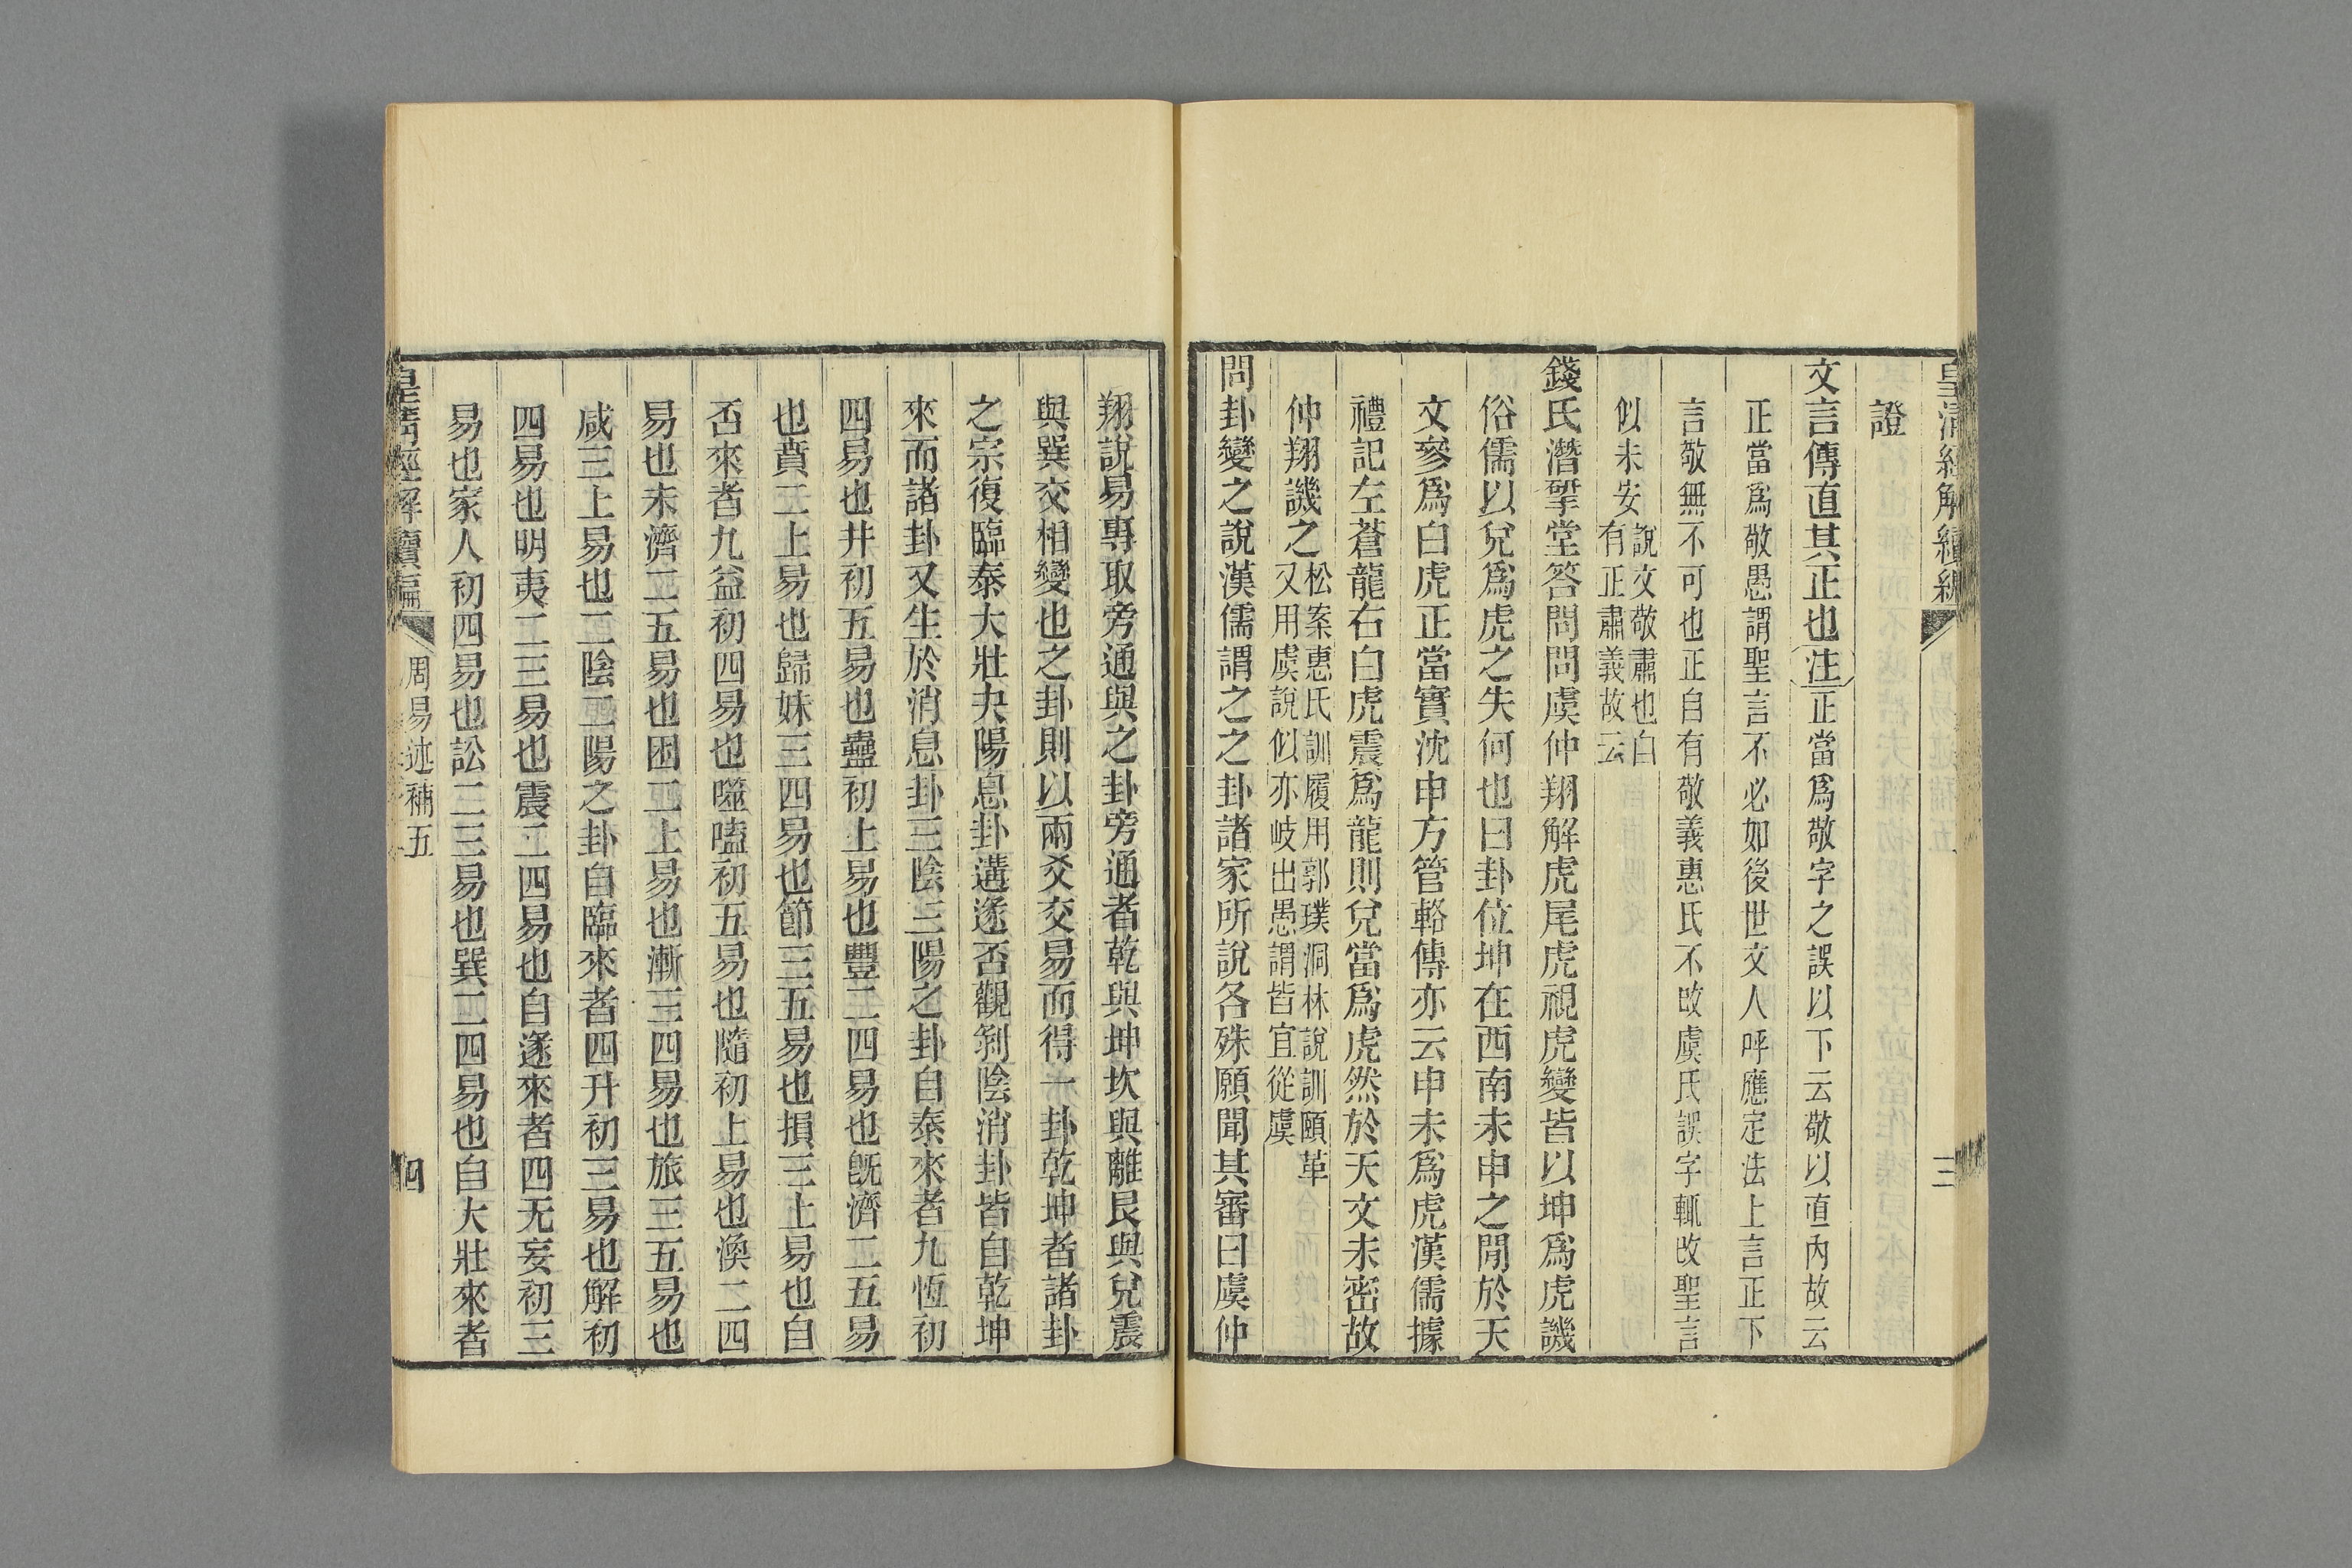 皇清經解續編
三
證
文言傳直其正也注正當爲敬字之誤以下云敬以直內故云
正當爲敬愚謂聖言不必如後世文人呼應定法上言正下
言敬無不可也正自有敬義惠氏不改虞氏誤字輒改聖言
似未安說文敬肅也白
有正肅義故云
錢氏潛揅堂答問問虞仲翔解虎尾虎視虎變皆以坤爲虎譏
俗儒以兌爲虎之失何也曰卦位坤在西南未申之閒於天
文參爲白虎正當實沈申方管輅傳亦云申未爲虎漢儒據
禮記左蒼龍右白虎震爲龍則兌當爲虎然於天文未密故
仲翔譏之松案惠氏訓履用郭璞洞林說訓頤革
又用虞說似亦岐出愚謂皆宜從虞
問卦變之說漢儒謂之之卦諸家所說各殊願聞其審曰虞仲
翔說易專取旁通與之卦旁通者乾與坤坎與離艮與兌震
與巽交相變也之卦則以兩爻交易而得一卦乾坤者諸卦
之宗復臨泰大壯夬陽息卦遘遂否觀剝陰消卦皆自乾坤
來而諸卦又生於消息卦三陰三陽之卦自泰來者九恆初
四易也井初五易也蠱初上易也豐二四易也旣濟二五易
也賁二上易也歸妹三四易也節三五易也損三上易也自
否來者九益初四易也噬嗑初五易也隨初上易也渙二四
易也未濟二五易也困二上易也漸三四易也旅三五易也
咸三上易也二陰二陽之卦自臨來者四升初三易也解初
四易也明夷二三易也震二四易也自遂來者四无妄初三
易也家人初四易也訟二三易也巽二四易也自大壯來者
皇清經解續編
周易述補五
四